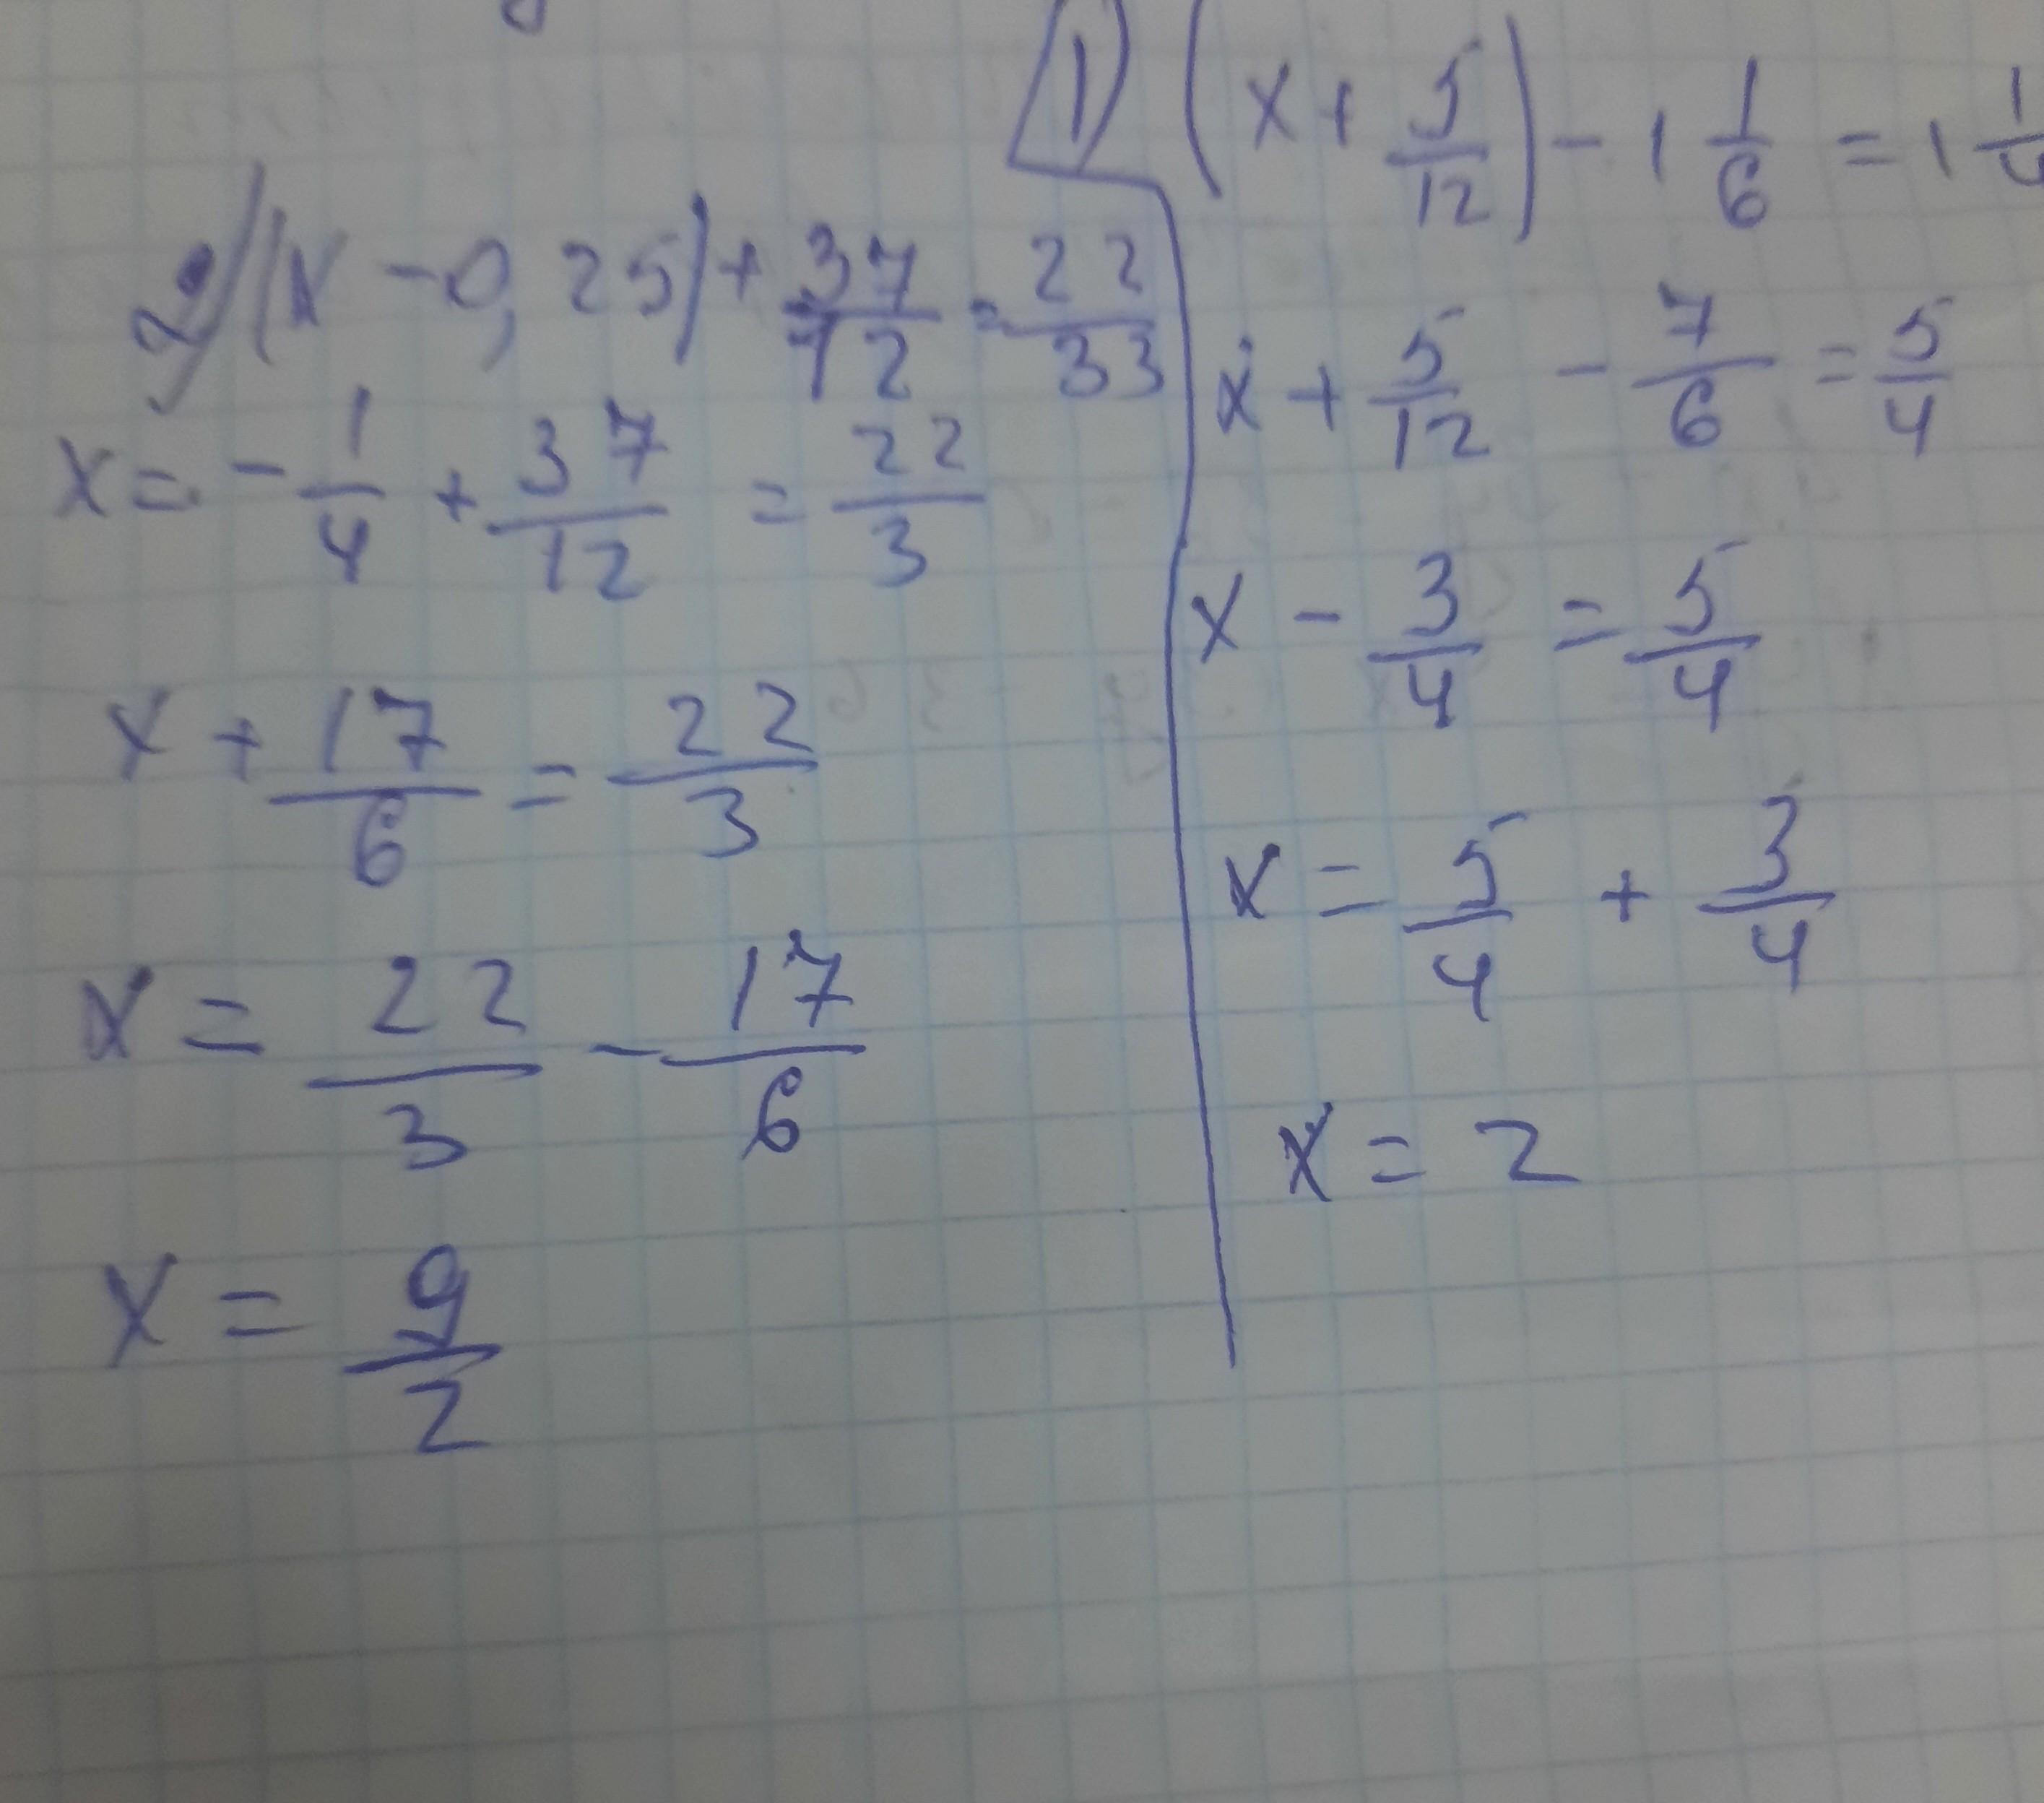 1) (x + 5/12) - 1 1/6 = 1 1/4
x + 5/12 - 7/6 = 5/4
x - 3/4 = 5/4
x = 5/4 + 3/4
x = 2
2) (x - 0,25) + 37/12 = 22/33
x = - 1/4 + 37/12 = 22/3
x + 17/6 = 22/3
x = 22/3 - 17/6
x = 9/2